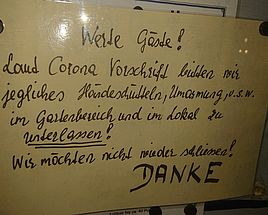 Werte Gäste!
Laut Corona Vorschrift bitten wir
jegliches Händeschütteln, Umarmung, u.s.w.
im Gartenbereich und im Lokal zu
unterlassen!
Wir möchten nicht wieder schliessen!
DANKE